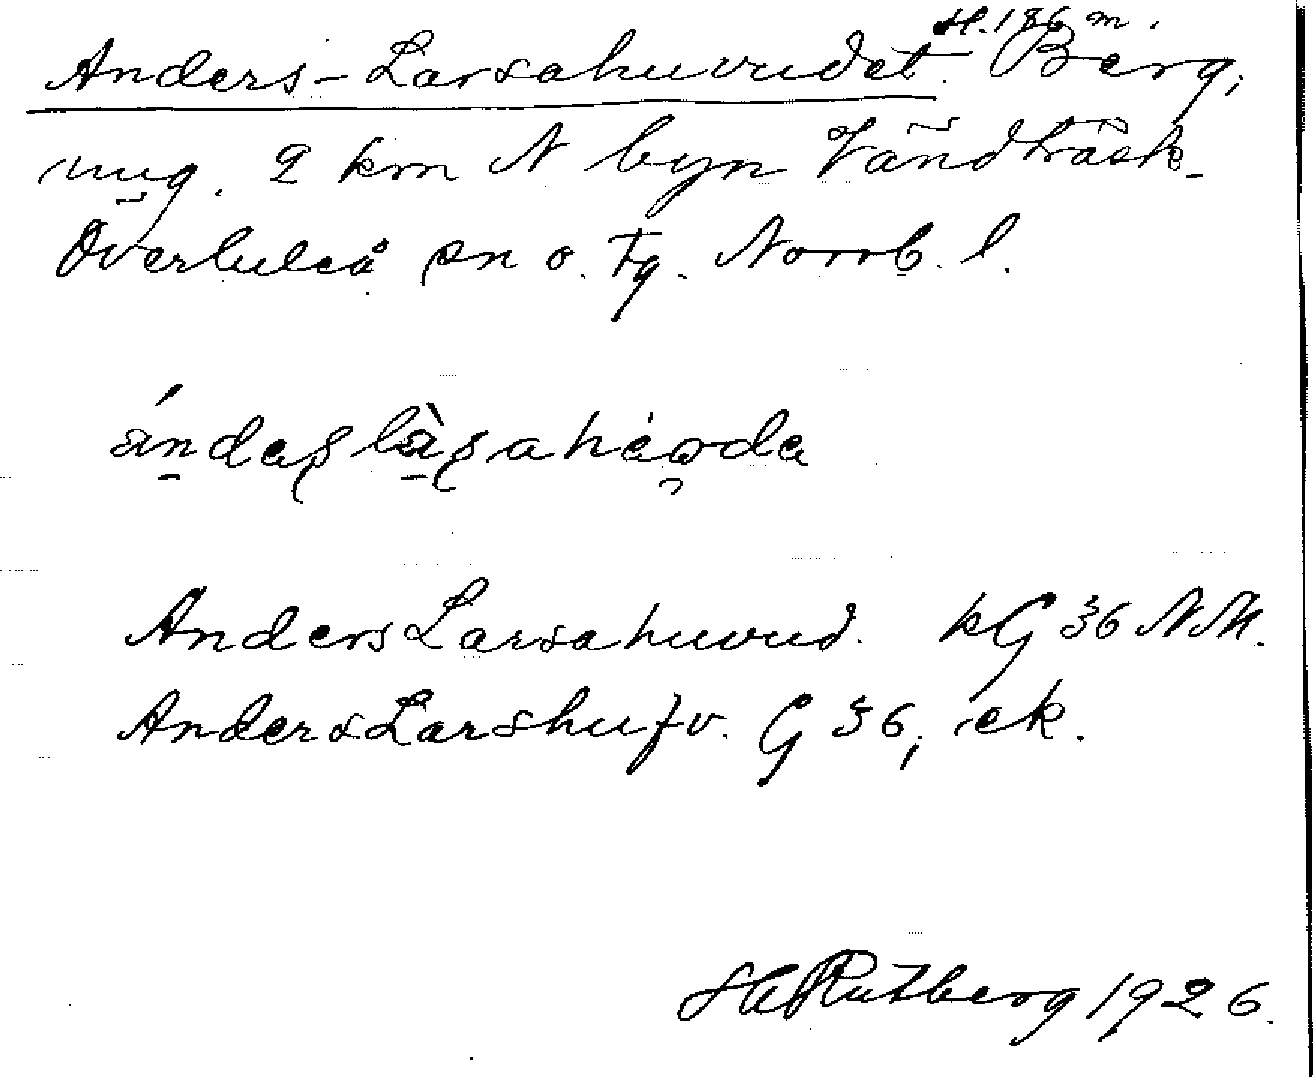 H. 186 m.
Anders-Larsahuvudet. Berg,
ung. 2 km N byn Vändträsk
Överluleå sn o. tg. Norrb. l.
Anders Larsahuvud. kG 36 NM.
Anders Larshufv. G 36, ek.
HARutberg 1926.